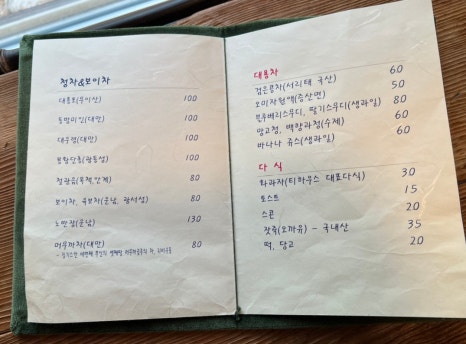 청차&보이차
대홍포(무이산) 100
동방미인(대만) 100
대우령(대만) 100
봉황단총(광동성) 100
철관음(목책, 안계) 80
보이차, 육보차(운남, 광서성) 80
노반장(운남) 130
여우까차(대만) 80
대용차
검은콩차(서리태 국산) 60
오미자원액(증산면) 50
블루베리스무디, 딸기스무디(생과일) 80
망고청, 백향과청(수제) 60
바나나 쥬스(생과일) 60
다 식
화과자(티하우스 대표다식) 30
토스트 15
스콘 20
잣죽(오까유) - 국내산 35
떡, 당고 20